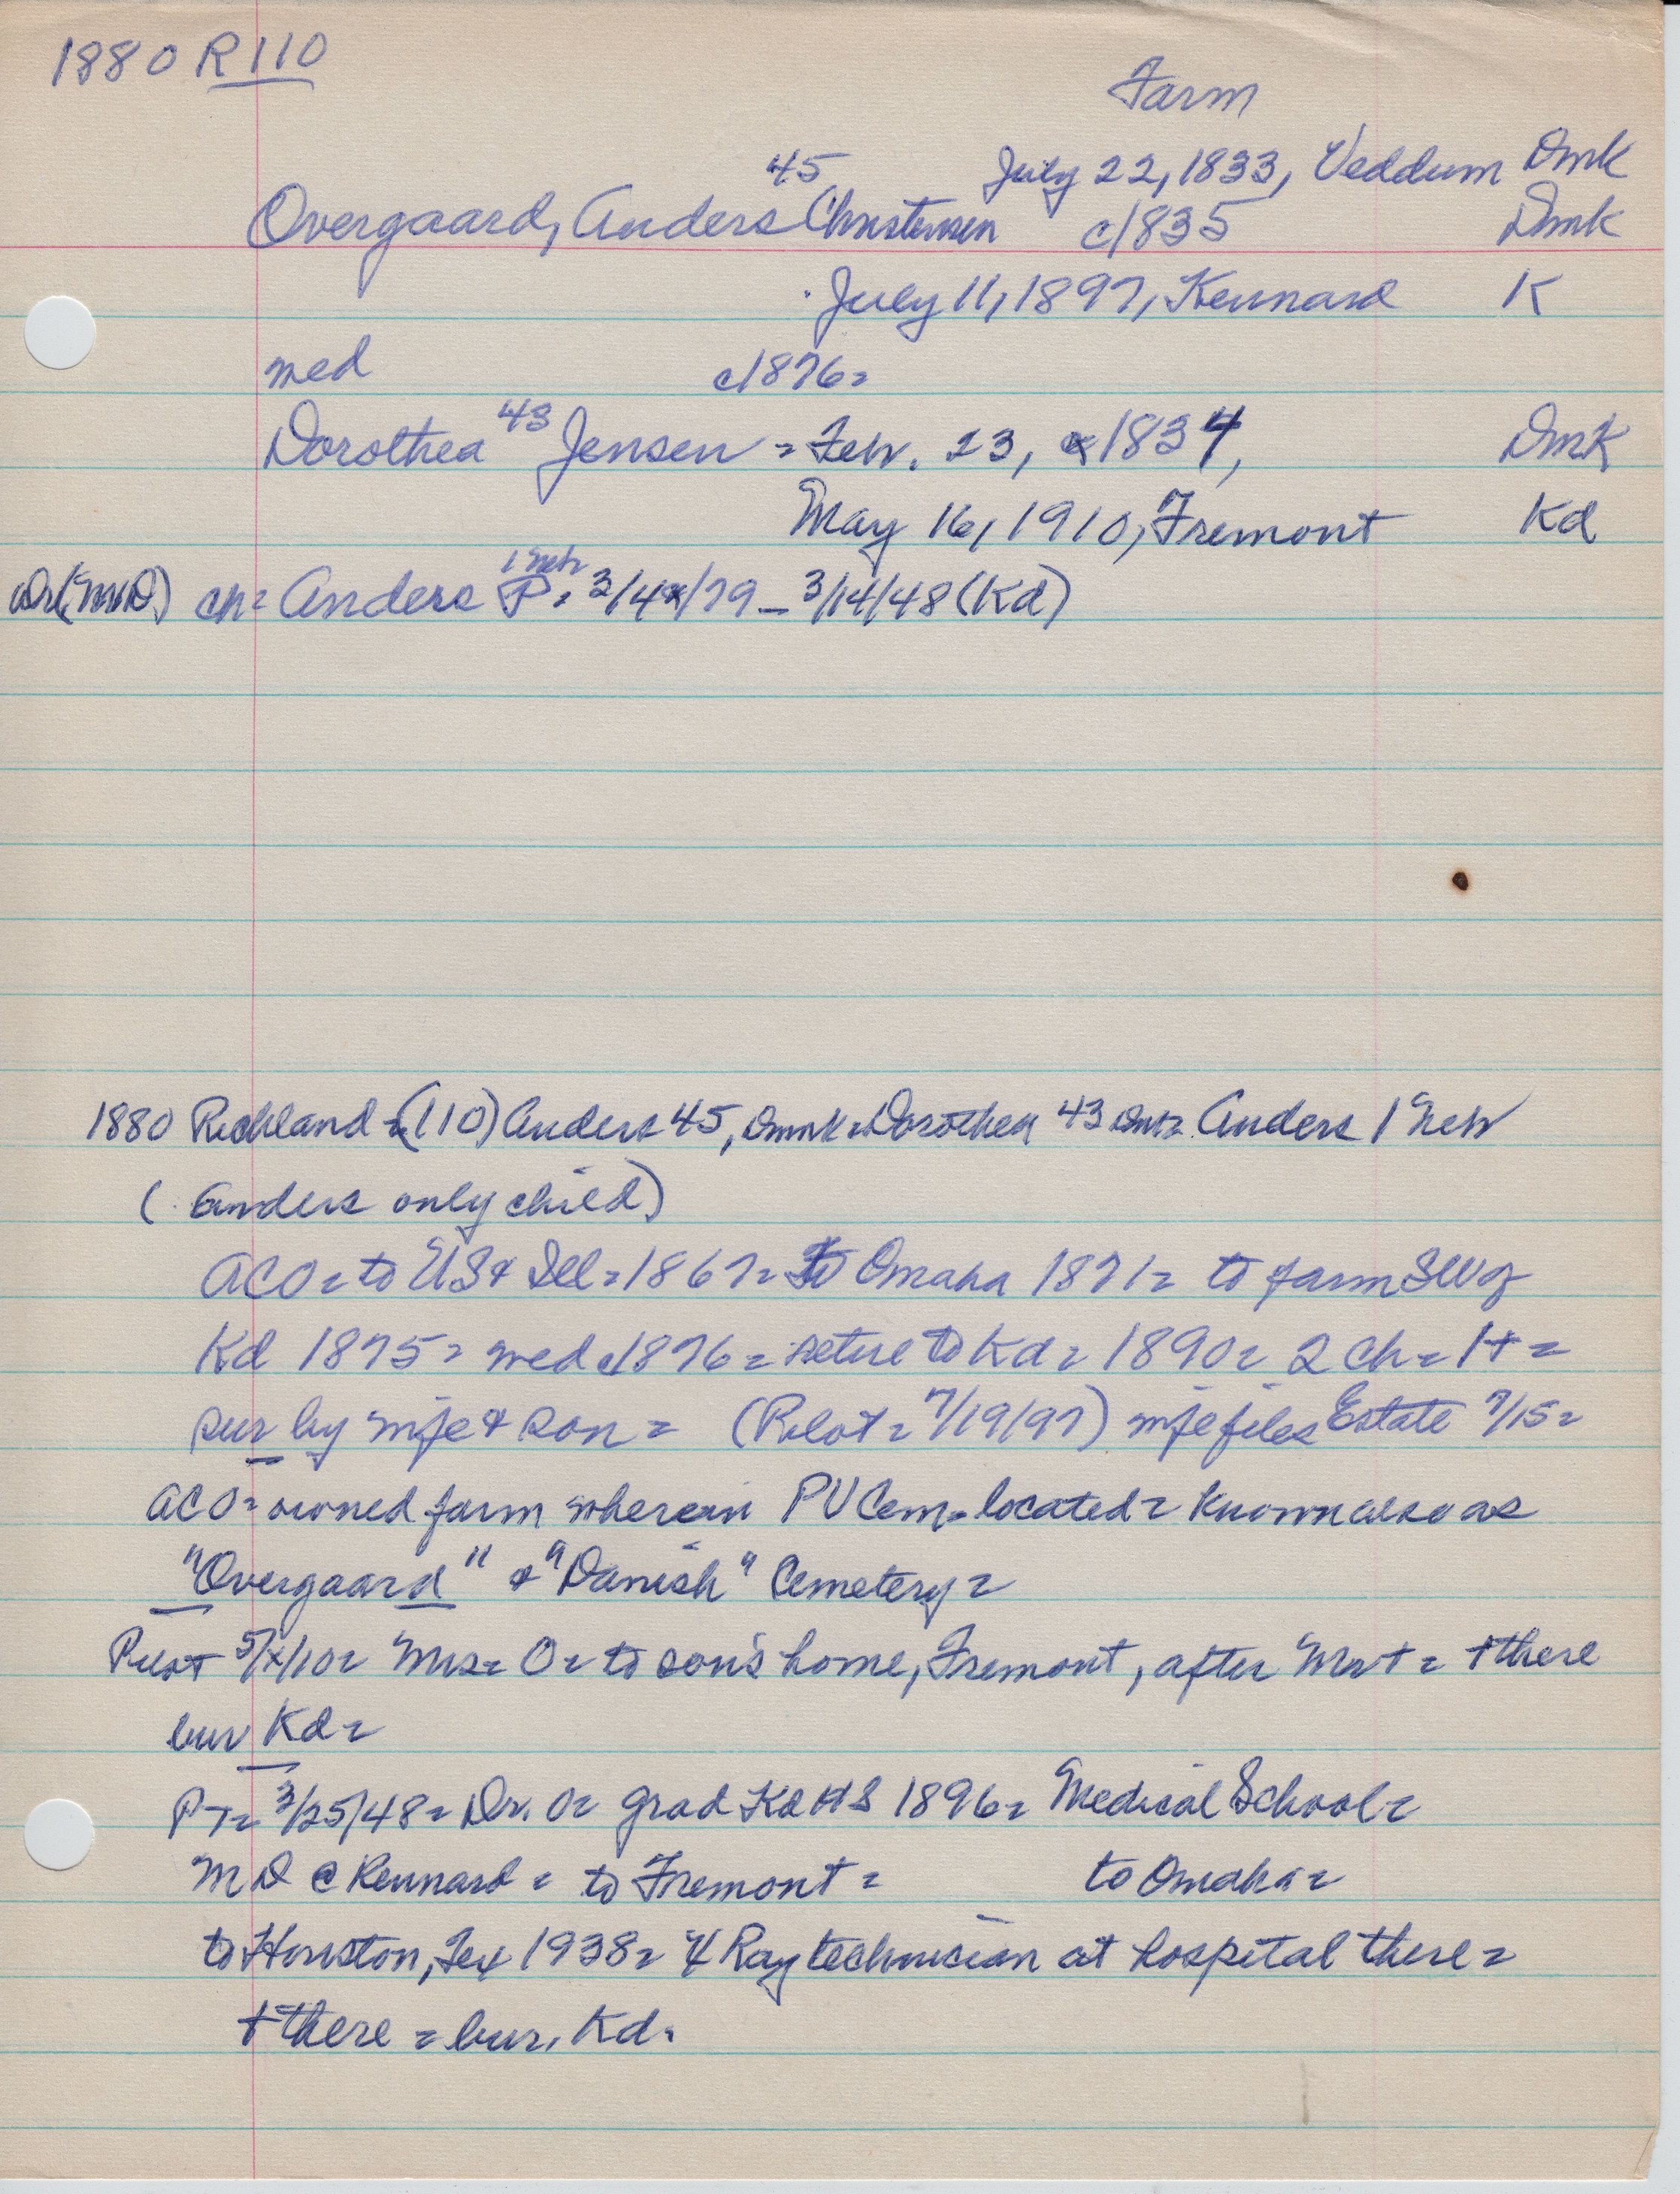 1880 R110
Farm
July 22, 1833, Veddum Dmk
45
Overgaard, Anders Christensen c1835 Dmk
July 11, 1897, Kennard K
med c1876=
Dorothea 43 Jensen = Feb. 23, 1834, Dmk
May 16, 1910, Fremont Kd
1 Neb
Dr (MD) ch= Anders P. = 3/4/79 - 3/14/48 (Kd)
1880 Richland = (110) Anders 45, Dmk = Dorothea 43 Dmk= Anders 1 Neb
(Anders only child)
ACO = to US & = 1867 = to Omaha 1871 = to farm SW of
Kd 1875 = med c1876 = retire to Kd = 1890 = 2 ch = 1+ =
sur by wife & son = (Pilot = 7/19/97) wife files Estate 7/15 =
ACO = owned farm wherein PV Cem. located = known also as
"Overgaard" & "Danish" Cemetery =
Pilot 5/x/10 = Mrs = O = to son's home, Fremont, after Mr + = + there
bur Kd =
PT = 3/25/48 = Dr. O = grad Kd HS 1896 = Medical School =
MD @ Kennard = to Fremont = to Omaha =
to Houston, Tex 1938 = X Ray technician at hospital there =
+ there = bur. Kd.